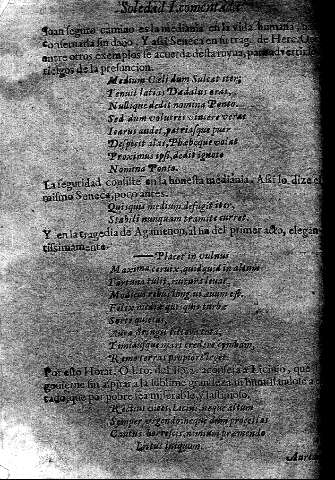 Soledad I. comentada
Quan seguro camino es la medianía en la vida humana
conseruarla sin daño. Y assi Seneca en su trag. de Herc. Oet.
entre otros exemplos se acuerda desta ruyna, para aduertir
riesgos de la presuncion.
Medium Cæli dum Sulcat iter,
Tenuit latias Dædalus oras,
Nullique dedit nomina Ponto.
Sed dum volucres vincere veras
Icarus audet, patriasque puer
Despicit alas, Phæboque volat
Proximus ipsi, dedit ignoto
Nomina Ponto.
La seguridad consiste en la honesta mediania. Assi lo dize el
mismo Seneca, poco antes.
Quisquis medium defugit iter,
Stabili nunquam tramite curret.
Y en la tragedia de Agamenon, al fin del primer acto, elegan-
tissimamente.
Placet in vulnus
Maxima ceruix, quidquid in altum
Fortuna tulit, ruitura leuat.
Modicis rebus longius æuum est.
Felix mediæ quisquis turbæ
Sorte quietus,
Aura stringit littora tuta,
Timidusque mari credere cymbam,
Remo terras propiore legit.
Por esto Horat. Od. 10. del lib. 2. aconseja a Licinio, que
ni aspirar a la sublime grandeza ni humillandose a
que por pobre sea miserable, y
Rectius viues, Licini, neque altum
Semper vrgendo: neque dum procellas
Cautus horrescis, nimium premendo
Littus iniquum.